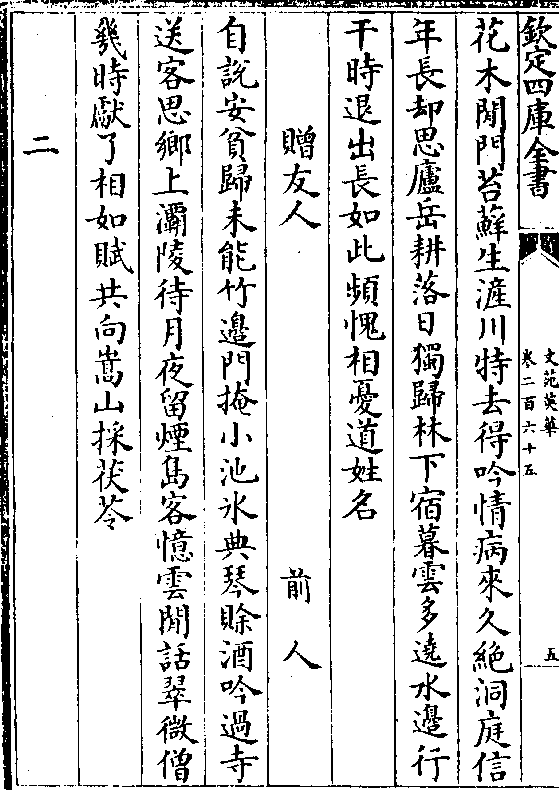 欽定四庫全書
文苑英華
卷二百六十五
五
花木閒門苔蘚生滻川特去得吟情病來久絶洞庭信
年長却思廬岳耕落日獨歸林下宿暮雲多遶水邊行
干時退出長如此頻愧相憂道姓名
贈友人 前人
自說安貧歸未能竹邊門掩小池氷典琴賒酒吟過寺
送客思鄉上灞陵待月夜留煙島客憶雲閒話翠微僧
幾時獻了相如賦共向嵩山採茯苓
二